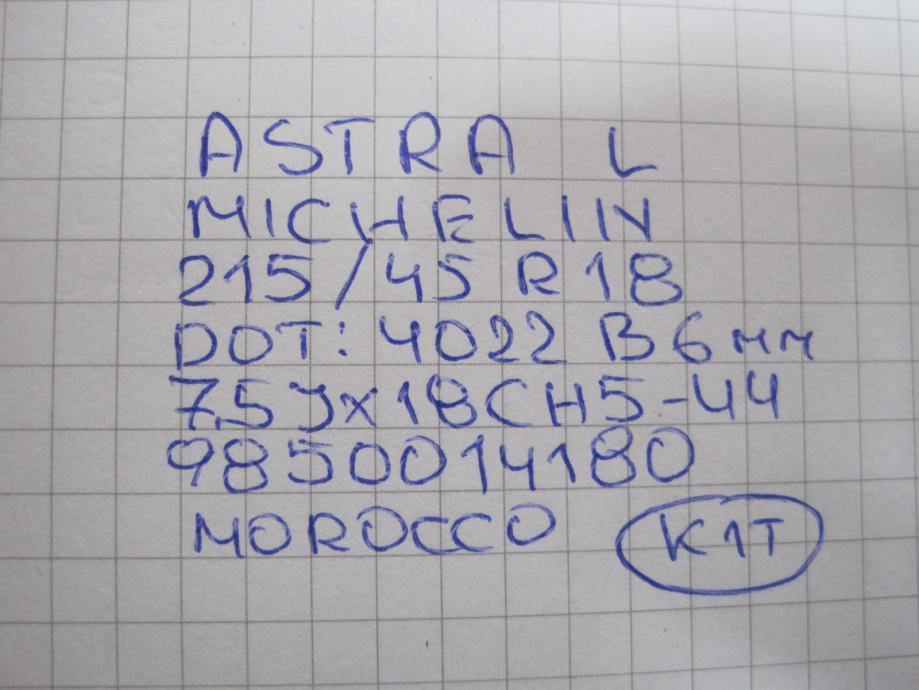 ASTRA L
MICHELIN
215/45 R18
DOT: 4022 B 6мм
7.5Jx18CH5-44
9850014180
MOROCCO K1T